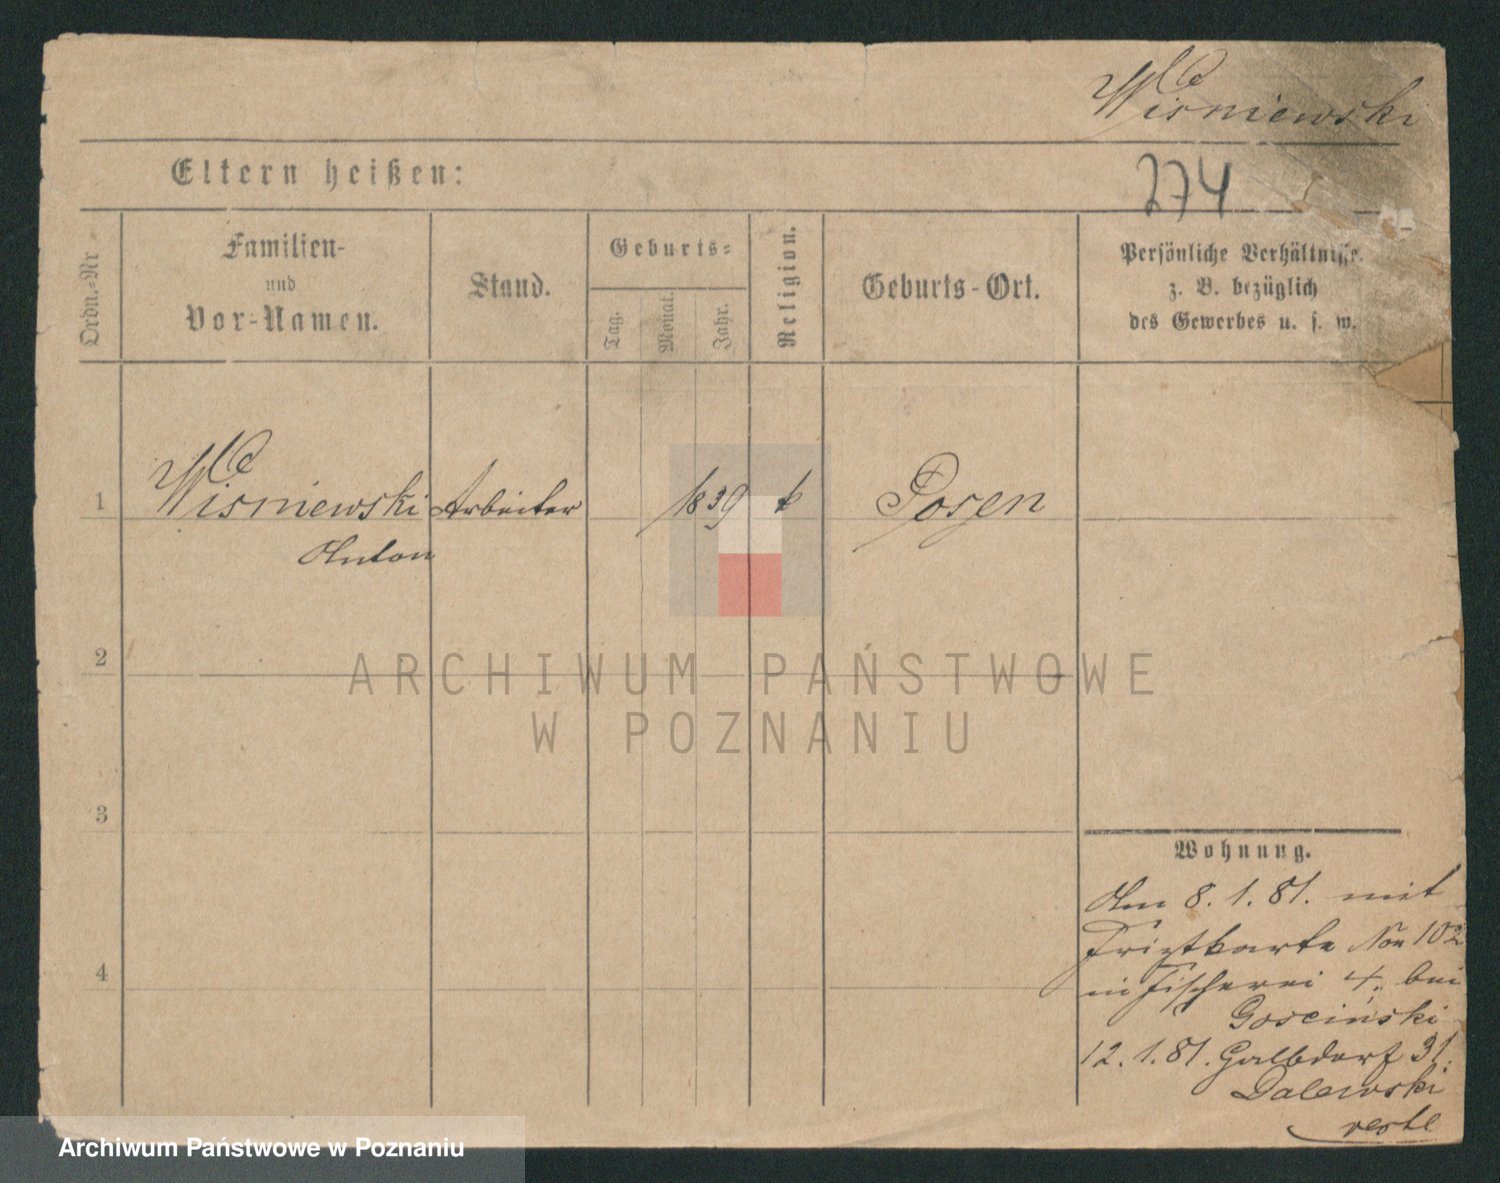 Wisniewski
Eltern heißen:
274
Ordn.-Nr
Familien-
und
Vor-Namen.
Stand.
Geburts-
Tag.
Monat.
Jahr.
Religion.
Geburts-Ort.
Persönliche Verhältnisse.
z. B. bezüglich
des Gewerbes u. s. w.
1
Wisniewski
Arbeiter
1839
k
Posen
Anton
2
ARCHIWUM PAŃSTWOWE
W POZNANIU
3
4
Wohnung.
Am 8. 1. 81. mit
No 102
in Fischerei 4. bei
Gosciński
12. 1. 81. Halbdorf 31.
Dalewski
Archiwum Państwowe w Poznaniu